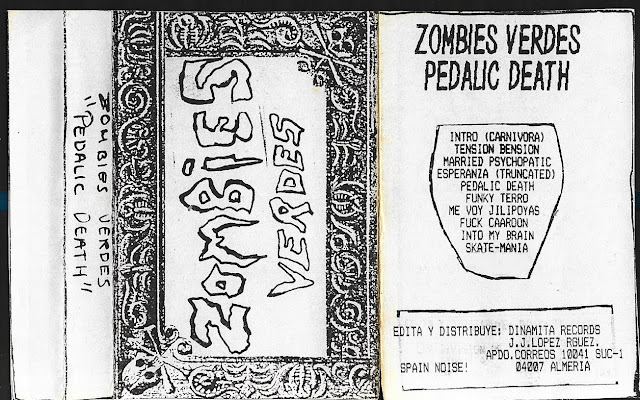 ZOMBIES VERDES
"PEDALIC DEATH"
ZOMBIES
VERDES
ZOMBIES VERDES
PEDALIC DEATH
INTRO (CARNIVORA)
TENSION BENSION
MARRIED PSYCHOPATIC
ESPERANZA (TRUNCATED)
PEDALIC DEATH
FUNKY TERRO
ME VOY JILIPOYAS
FUCK CAARDON
INTO MY BRAIN
SKATE-MANIA
EDITA Y DISTRIBUYE: DINAMITA RECORDS
J.J.LOPEZ RGUEZ.
APDO.CORREOS 10041 SUC-1
SPAIN NOISE! 04007 ALMERIA